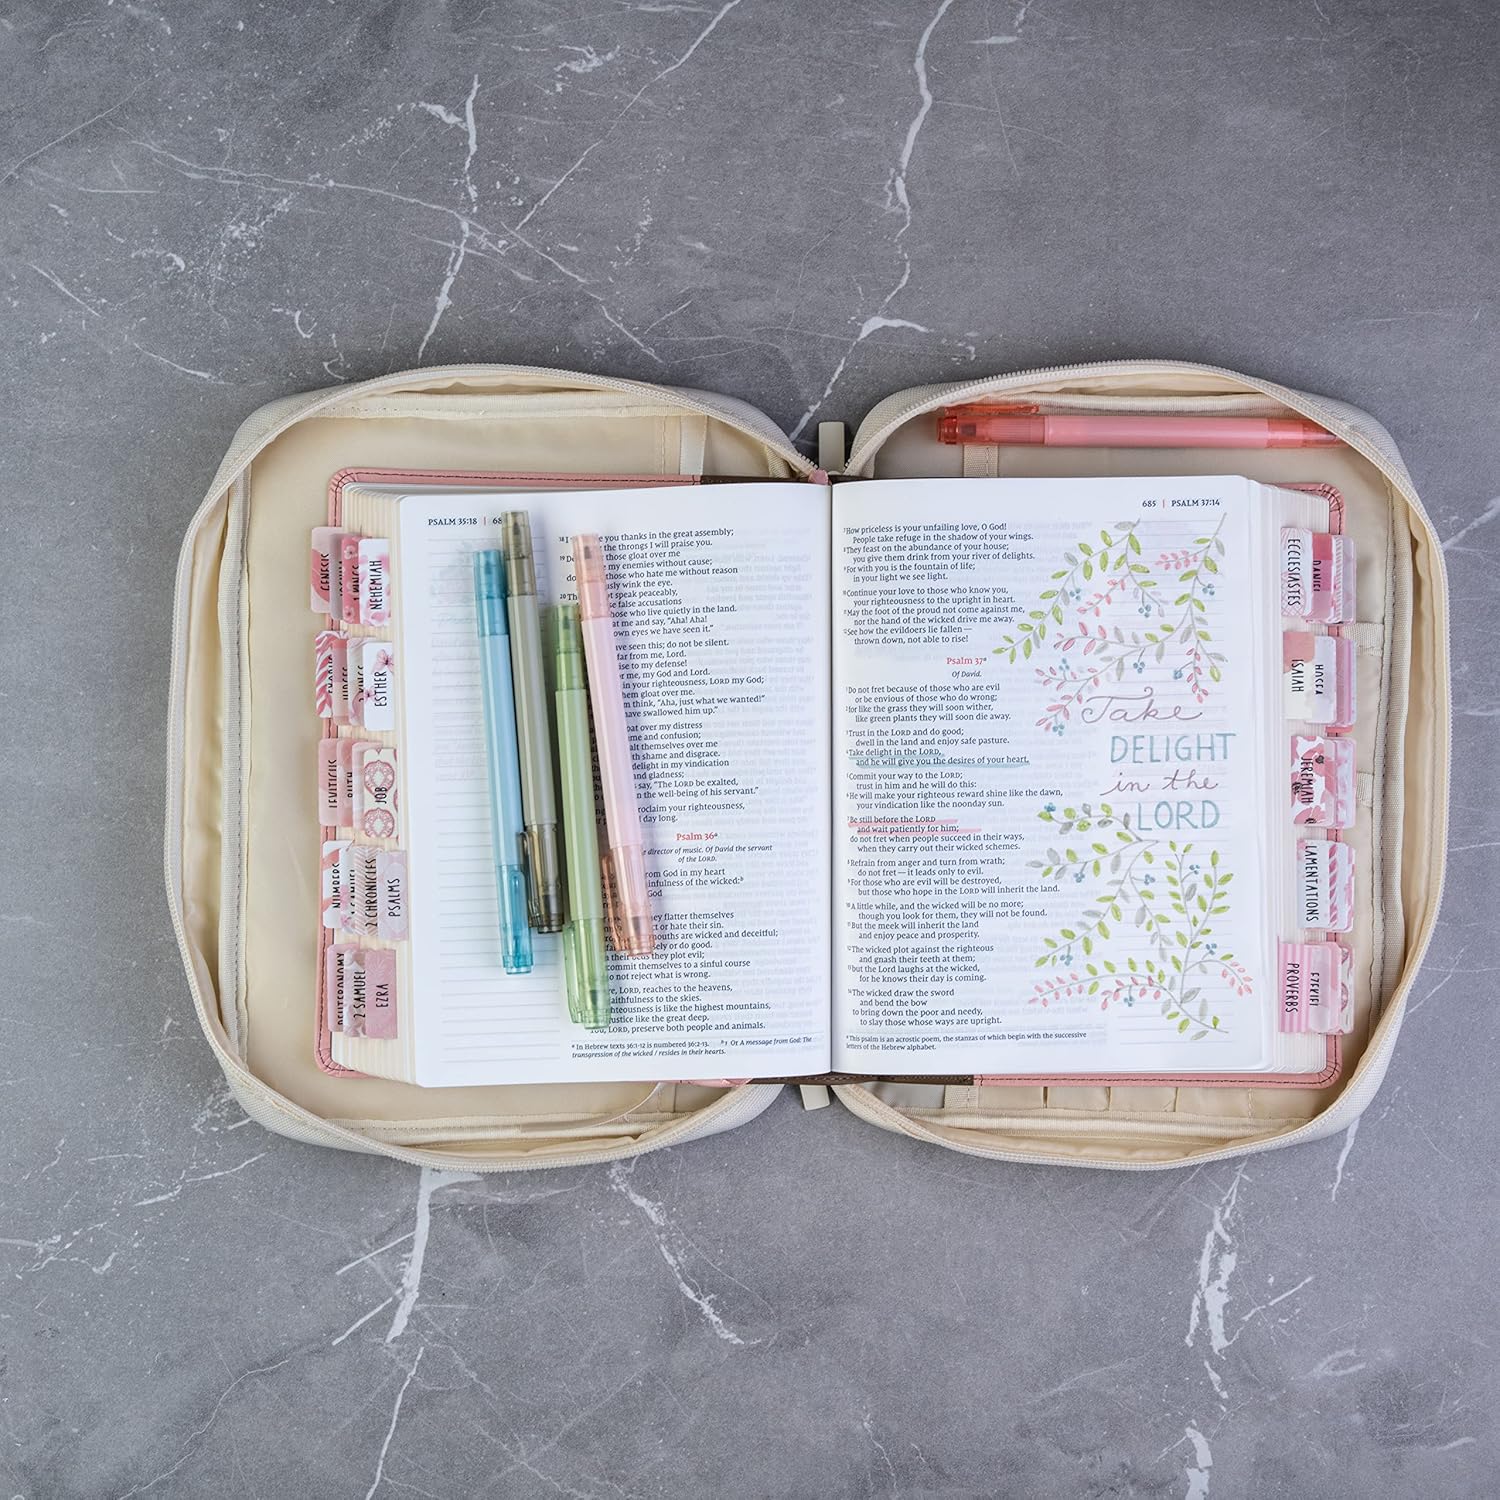 PSALM 35:18 | 68
you thanks in the great assembly;
the throngs I will praise you.
those gloat over me
my enemies without cause;
those who hate me without reason
wink the eye.
speak peaceably,
false accusations
those who live quietly in the land.
at me and say, "Aha! Aha!
own eyes we have seen it."
have seen this; do not be silent.
far from me, Lord.
rise to my defense!
me, my God and Lord.
in your righteousness, LORD my God;
them gloat over me.
think, "Aha, just what we wanted!"
have swallowed him up."
gloat over my distress
me and confusion;
exalt themselves over me
with shame and disgrace.
delight in my vindication
and gladness;
say, "The LORD be exalted,
in the well-being of his servant."
proclaim your righteousness,
day long.
Psalm 36ᵃ
director of music. Of David the servant
of the LORD.
from God in my heart
sinfulness of the wicked:ᵇ
God
they flatter themselves
or hate their sin.
mouths are wicked and deceitful;
or do good.
in their beds they plot evil;
commit themselves to a sinful course
do not reject what is wrong.
LORD, reaches to the heavens,
faithfulness to the skies.
righteousness is like the highest mountains,
justice like the great deep.
You, LORD, preserve both people and animals.
ᵃ In Hebrew texts 36:1-12 is numbered 36:2-13. ᵇ 1 Or A message from God: The
transgression of the wicked / resides in their hearts.
685 | PSALM 37:14
⁷How priceless is your unfailing love, O God!
People take refuge in the shadow of your wings.
⁸They feast on the abundance of your house;
you give them drink from your river of delights.
⁹For with you is the fountain of life;
in your light we see light.
¹⁰Continue your love to those who know you,
your righteousness to the upright in heart.
¹¹May the foot of the proud not come against me,
nor the hand of the wicked drive me away.
¹²See how the evildoers lie fallen —
thrown down, not able to rise!
Psalm 37ᵃ
Of David.
¹Do not fret because of those who are evil
or be envious of those who do wrong;
²for like the grass they will soon wither,
like green plants they will soon die away.
³Trust in the LORD and do good;
dwell in the land and enjoy safe pasture.
⁴Take delight in the LORD,
and he will give you the desires of your heart.
⁵Commit your way to the LORD;
trust in him and he will do this:
⁶He will make your righteous reward shine like the dawn,
your vindication like the noonday sun.
⁷Be still before the LORD
and wait patiently for him;
do not fret when people succeed in their ways,
when they carry out their wicked schemes.
⁸Refrain from anger and turn from wrath;
do not fret — it leads only to evil.
⁹For those who are evil will be destroyed,
but those who hope in the LORD will inherit the land.
¹⁰A little while, and the wicked will be no more;
though you look for them, they will not be found.
¹¹But the meek will inherit the land
and enjoy peace and prosperity.
¹²The wicked plot against the righteous
and gnash their teeth at them;
¹³but the Lord laughs at the wicked,
for he knows their day is coming.
¹⁴The wicked draw the sword
and bend the bow
to bring down the poor and needy,
to slay those whose ways are upright.
ᵃ This psalm is an acrostic poem, the stanzas of which begin with the successive
letters of the Hebrew alphabet.
Take
DELIGHT
in the
LORD
GENESIS
NEHEMIAH
ESTHER
LEVITICUS
RUTH
JOB
NUMBERS
2 CHRONICLES
PSALMS
DEUTERONOMY
2 SAMUEL
EZRA
ECCLESIASTES
DANIEL
ISAIAH
HOSEA
JEREMIAH
LAMENTATIONS
PROVERBS
EZEKIEL